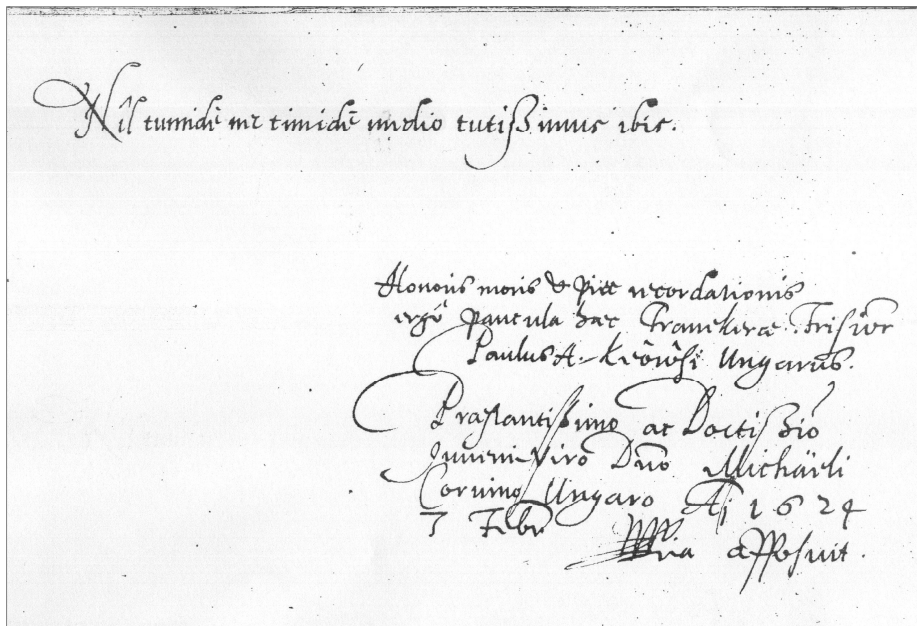 Nil tumidè nec timidè medio tutissimus ibis.
Honoris moris & piæ recordationis
ergô paucula hæc Franekeræ Frisior
Paulus A. Keôrôsi Ungarus.
Præstantissimo ac Doctissimo
Juveni-Viro Dno Michäeli
Corvino Ungaro Aî 1624
7 Febr
apposuit.